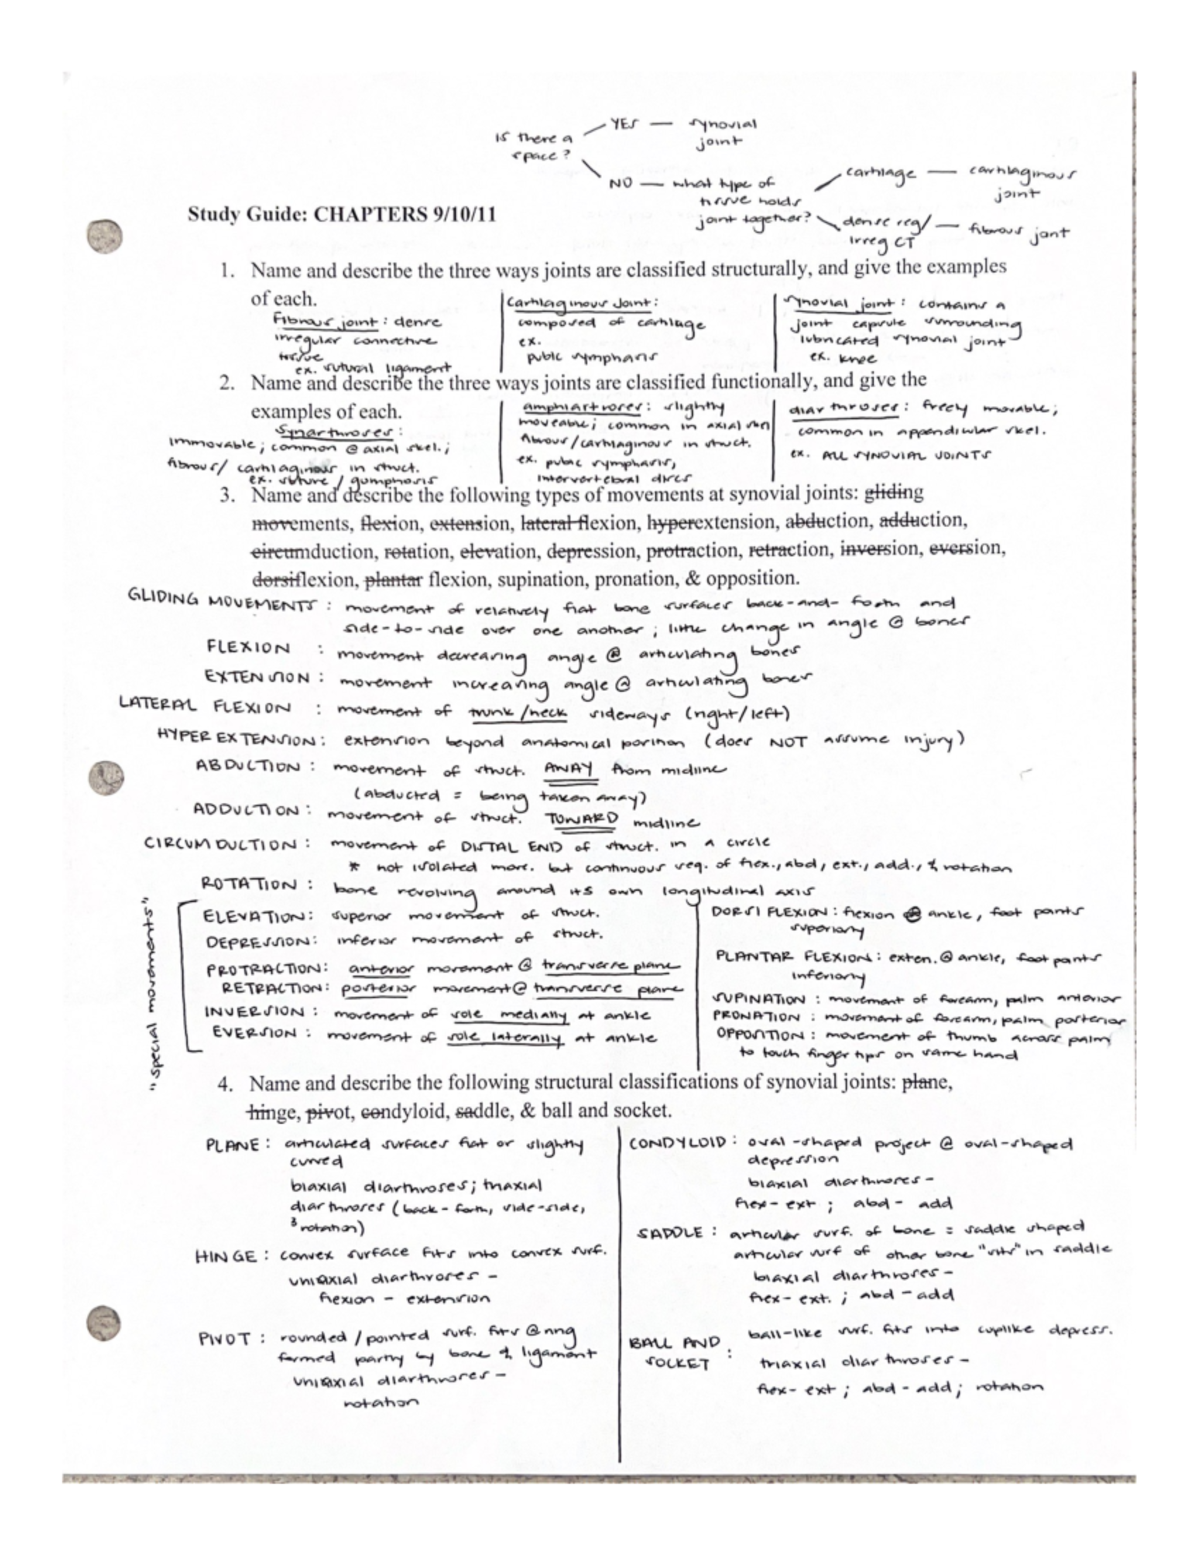 is there a
space?
YES — synovial
joint
NO — what type of
tissue holds
joint together?
cartilage — cartilaginous
joint
dense reg/
irreg CT — fibrous joint
Study Guide: CHAPTERS 9/10/11
1. Name and describe the three ways joints are classified structurally, and give the examples
of each.
Fibrous joint: dense
irregular connective
tissue
ex. sutural ligament
Cartilaginous Joint:
composed of cartilage
ex.
pubic symphasis
synovial joint: contains a
joint capsule surrounding
lubricated synovial joint
ex. knee
2. Name and describe the three ways joints are classified functionally, and give the
examples of each.
Synarthroses:
immovable; common @ axial skel.;
fibrous/ cartilaginous in struct.
ex. suture / gomphosis
amphiarthroses: slightly
moveable; common in axial skel
fibrous/cartilaginous in struct.
ex. pubic symphasis,
intervertebral discs
diarthroses: freely movable;
common in appendicular skel.
ex. ALL SYNOVIAL JOINTS
3. Name and describe the following types of movements at synovial joints: gliding
movements, flexion, extension, lateral flexion, hyperextension, abduction, adduction,
circumduction, rotation, elevation, depression, protraction, retraction, inversion, eversion,
dorsiflexion, plantar flexion, supination, pronation, & opposition.
GLIDING MOVEMENTS: movement of relatively flat bone surfaces back-and-forth and
side-to-side over one another; little change in angle @ bones
FLEXION : movement decreasing angle @ articulating bones
EXTENSION: movement increasing angle @ articulating bones
LATERAL FLEXION : movement of trunk/neck sideways (right/left)
HYPER EXTENSION: extension beyond anatomical position (does NOT assume injury)
ABDUCTION: movement of struct. AWAY from midline
(abducted = being taken away)
ADDUCTION: movement of struct. TOWARD midline
CIRCUMDUCTION: movement of DISTAL END of struct. in a circle
* not isolated move. but continuous seq. of flex., abd, ext., add., & rotation
ROTATION: bone revolving around its own longitudinal axis
"special movements"
ELEVATION: superior movement of struct.
DEPRESSION: inferior movement of struct.
PROTRACTION: anterior movement @ transverse plane
RETRACTION: posterior movement @ transverse plane
INVERSION: movement of sole medially at ankle
EVERSION: movement of sole laterally at ankle
DORSI FLEXION: flexion @ ankle, foot points
superiorly
PLANTAR FLEXION: exten. @ ankle, foot points
inferiorly
SUPINATION: movement of forearm, palm anterior
PRONATION: movement of forearm, palm posterior
OPPOSITION: movement of thumb across palm
to touch finger tips on same hand
4. Name and describe the following structural classifications of synovial joints: plane,
hinge, pivot, condyloid, saddle, & ball and socket.
PLANE: articulated surfaces flat or slightly
curved
biaxial diarthroses; triaxial
diarthroses (back-forth, side-side,
& rotation)
HINGE: convex surface fits into convex surf.
uniaxial diarthroses -
flexion - extension
PIVOT: rounded/pointed surf. fits @ ring
formed partly by bone & ligament
uniaxial diarthroses -
rotation
CONDYLOID: oval-shaped project @ oval-shaped
depression
biaxial diarthroses -
flex-ext; abd-add
SADDLE: articular surf. of bone = saddle shaped
articular surf of other bone "sits" in saddle
biaxial diarthroses -
flex-ext.; abd-add
BALL AND
SOCKET : ball-like surf. fits into cuplike depress.
triaxial diarthroses -
flex-ext; abd-add; rotation